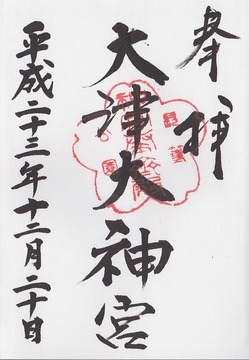 奉拝
大津大神宮
平成二十三年十二月二十日